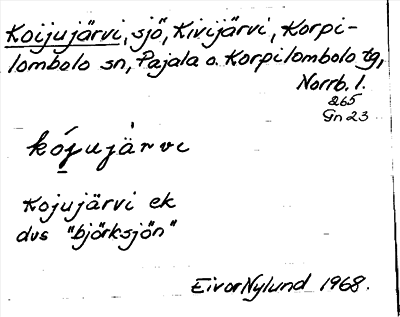 Koijujärvi, sjö, Kivijärvi, Korpi-
lombolo sn, Pajala o. Korpilombolo tg,
Norrb. l.
265
Gn 23
kójujàrvi
Kojujärvi ek
dvs "björksjön"
Eivor Nylund 1968.